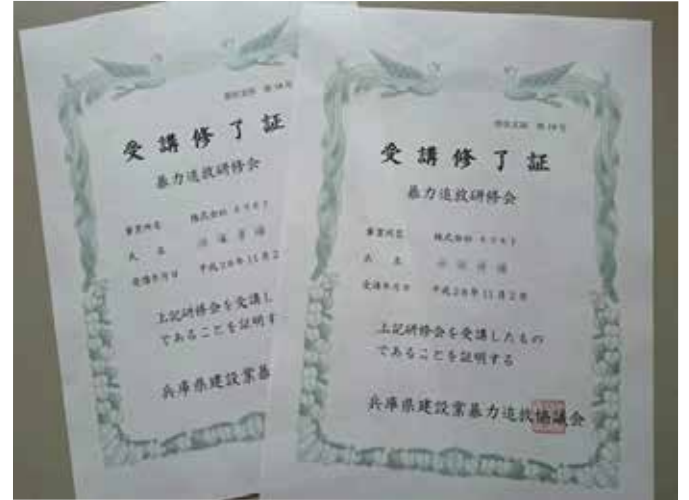 受講修了証
暴力追放研修会
事業所名 株式会社
氏 名
受講年月日 平成28年11月2
上記研修会を受講し
であることを証明す
兵庫県建設業暴
受講修了証
暴力追放研修会
事業所名 株式会社
氏 名
受講年月日 平成28年11月2日
上記研修会を受講したもの
であることを証明する
兵庫県建設業暴力追放協議会